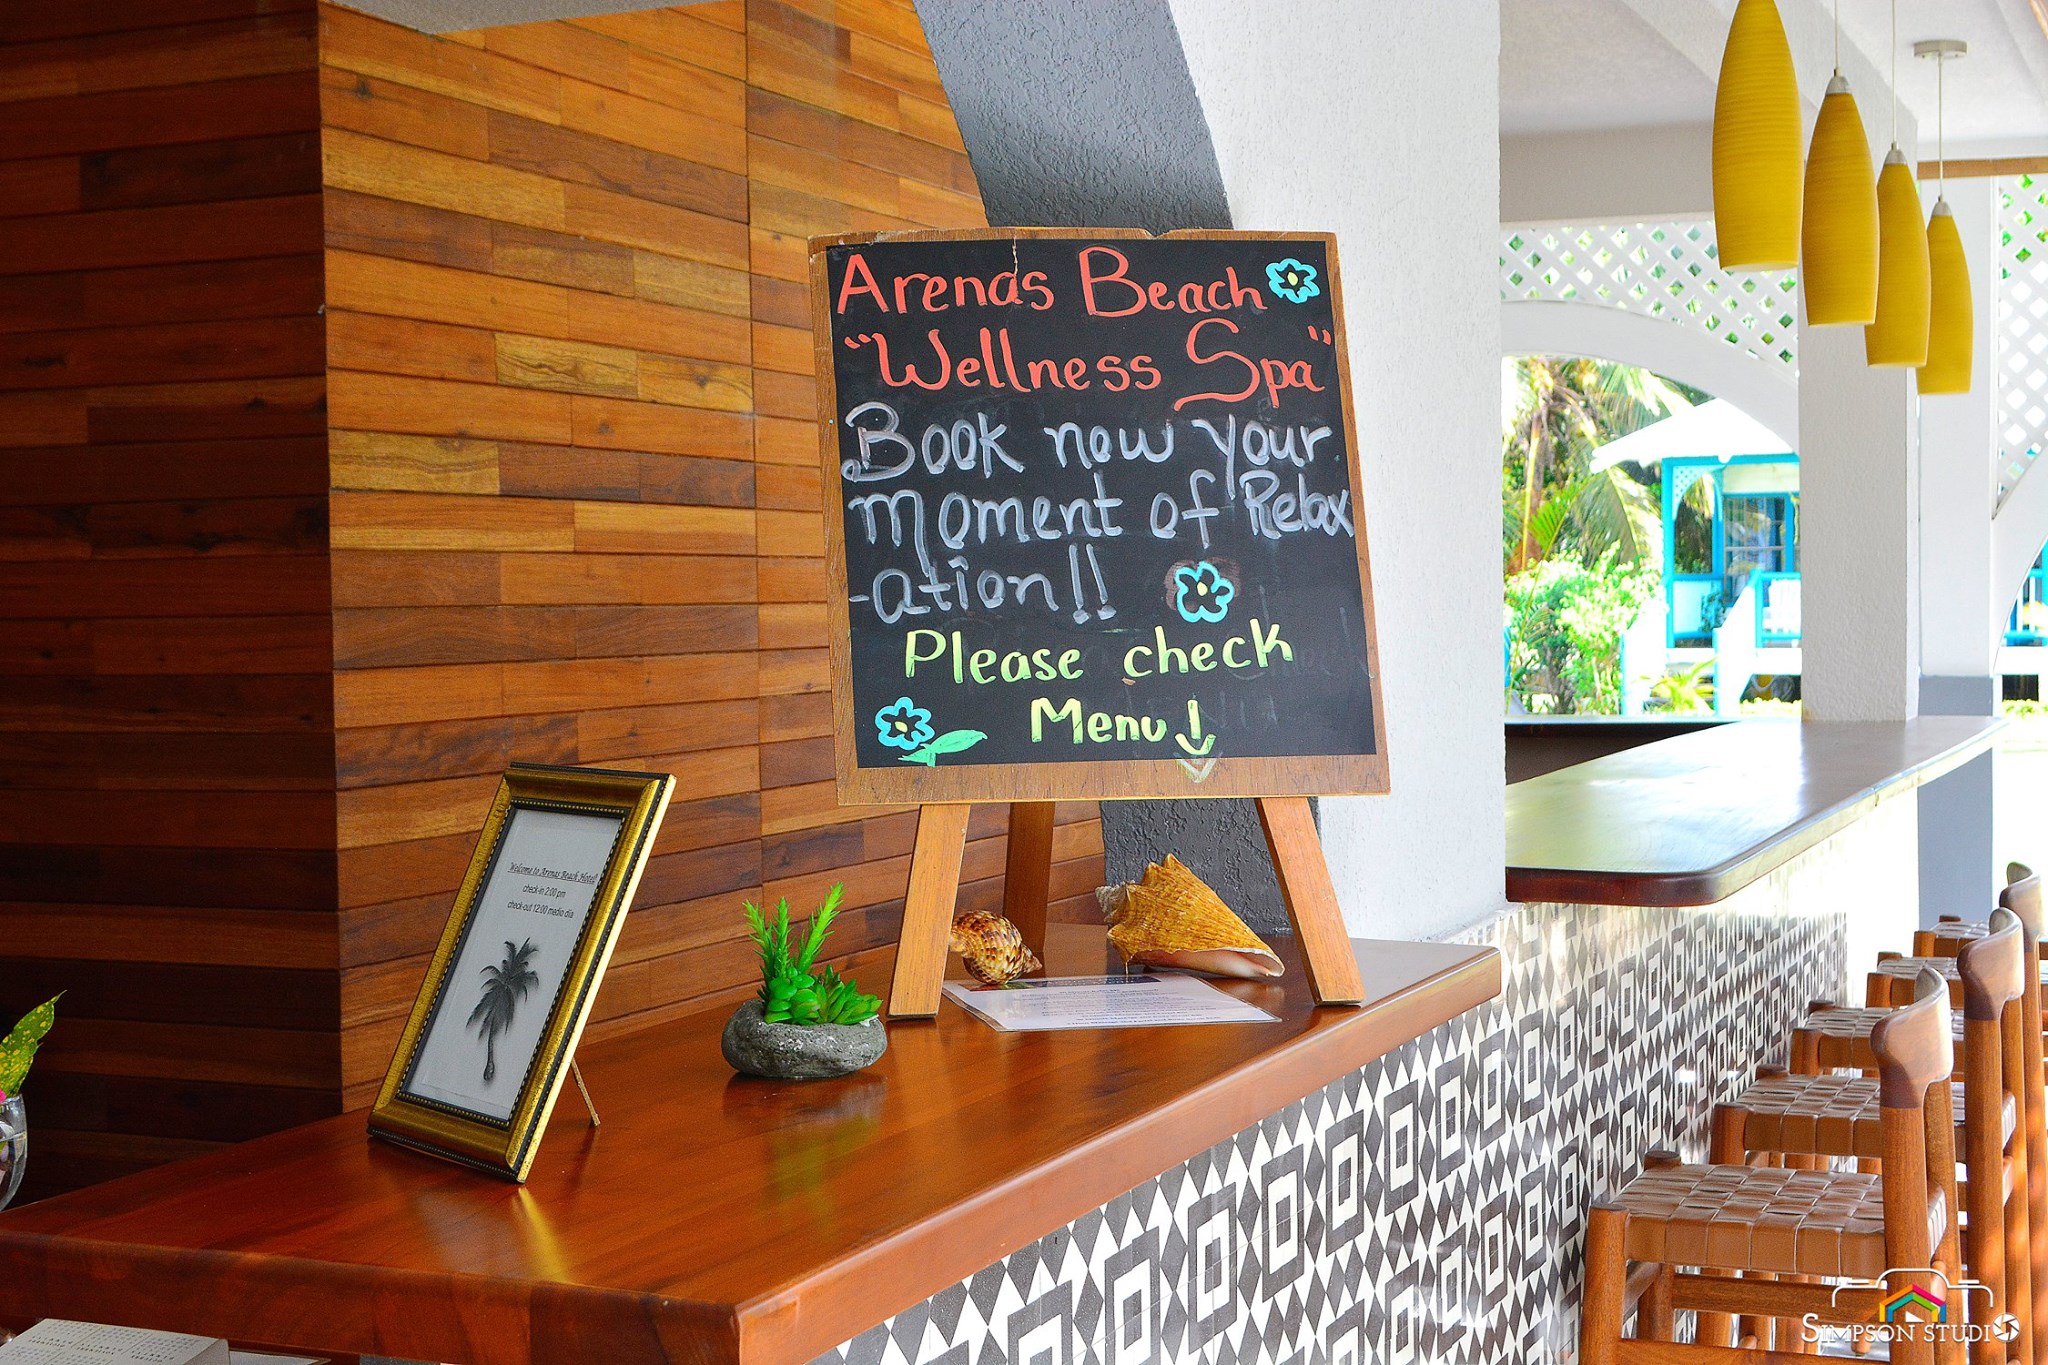 Arenas Beach
"Wellness Spa"
Book now your
moment of Relax
-ation!!
Please check
Menu!
Welcome to Arenas Beach Hotel!
check-in 2:00 pm
check-out 12:00 medio día
SIMPSON STUDIO